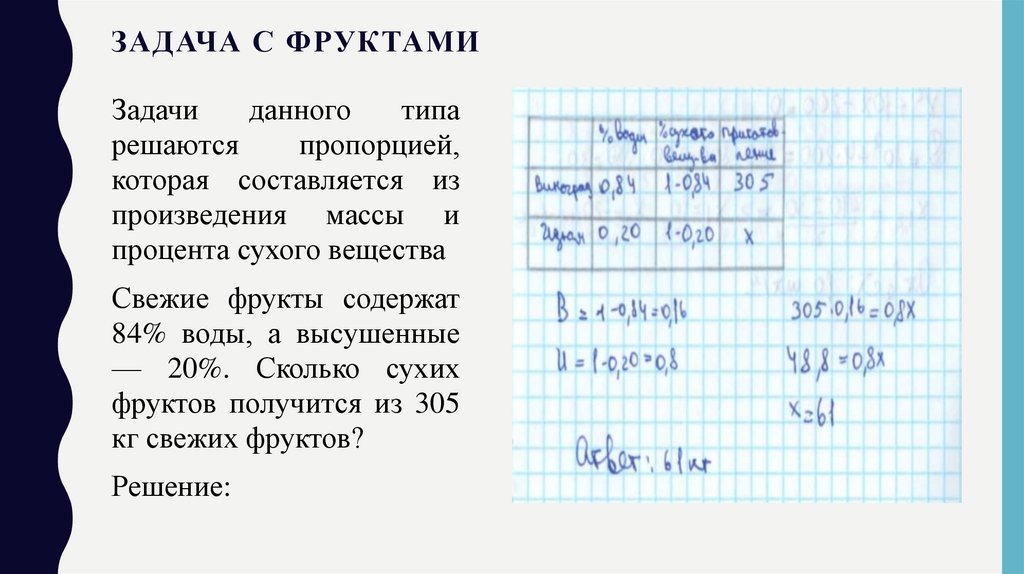 ЗАДАЧА С ФРУКТАМИ
Задачи данного типа
решаются пропорцией,
которая составляется из
произведения массы и
процента сухого вещества
Свежие фрукты содержат
84% воды, а высушенные
— 20%. Сколько сухих
фруктов получится из 305
кг свежих фруктов?
Решение:
% воды % сухого приготов-
вещ-ва ление
Виноград 0,84 1-0,84 305
Изюм 0,20 1-0,20 x
В = 1-0,84=0,16
И = 1-0,20=0,8
305·0,16=0,8x
48,8=0,8x
x=61
Ответ: 61 кг